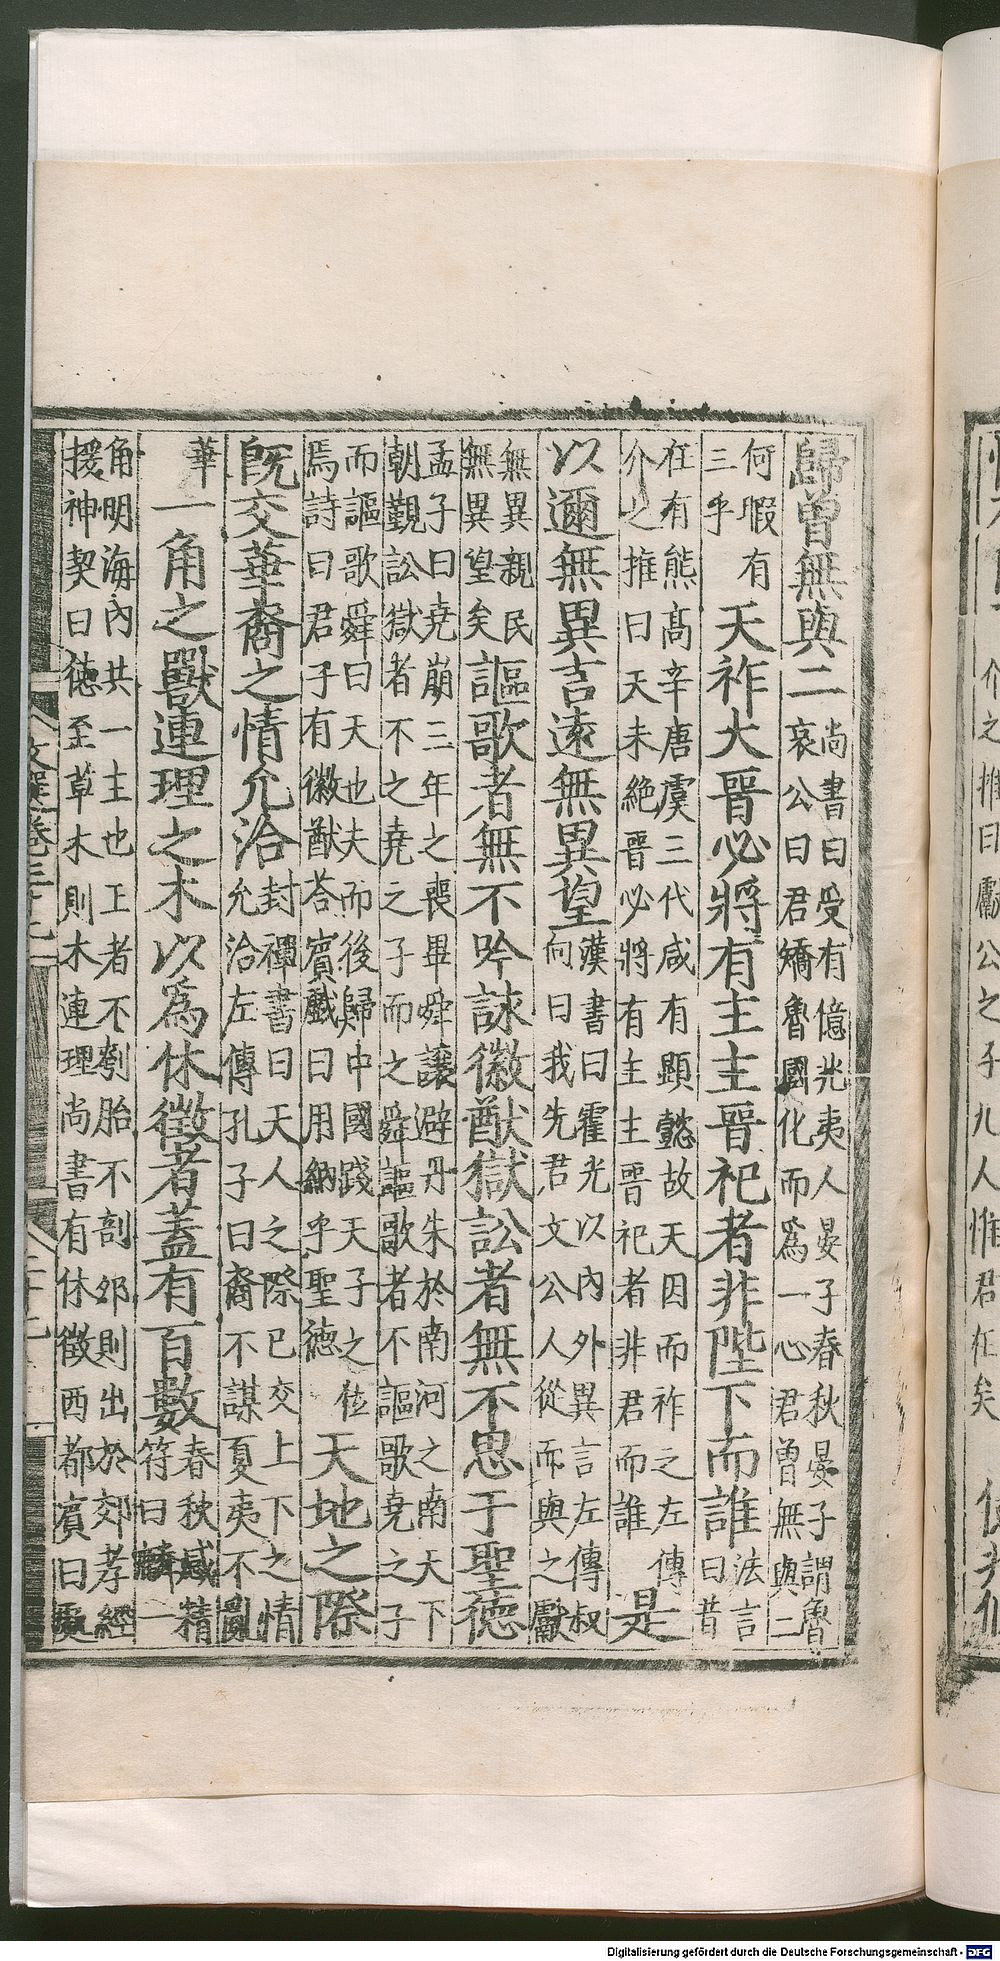 歸曾無與二尚書曰受有億兆夷人晏子春秋晏子謂魯
哀公曰君矯魯國化而爲一心君曾無與二
何暇有
三乎
天祚大晉必將有主主晉祀者非陛下而誰法言
曰昔
在有熊高辛唐虞三代咸有顯懿故天因而祚之左傳
介之推曰天未絶晉必將有主主晉祀者非君而誰
是
以邇無異言遠無異望漢書曰霍光以內外異言左傳叔
向曰我先君文公人從而與之獻
無異親民
無異望矣
謳歌者無不吟詠徽猷獄訟者無不思于聖德
孟子曰堯崩三年之喪畢舜讓避丹朱於南河之南天下
朝覲訟獄者不之堯之子而之舜謳歌者不謳歌堯之子
而謳歌舜曰天也夫而後歸中國踐天子之位
焉詩曰君子有徽猷荅賓戲曰用納乎聖德
天地之際
旣交華裔之情允洽封禪書曰天人之際已交上下之情
允洽左傳孔子曰裔不謀夏夷不亂
華
一角之獸連理之木以爲休徵者蓋有百數春秋感精
符曰麟一
角明海內共一主也王者不刳胎不剖卵則出於郊孝經
援神契曰德至草木則木連理尚書有休徵西都賓曰
文選卷三十七
介之推曰獻公之子九人惟君在矣
Digitalisierung gefördert durch die Deutsche Forschungsgemeinschaft - DFG